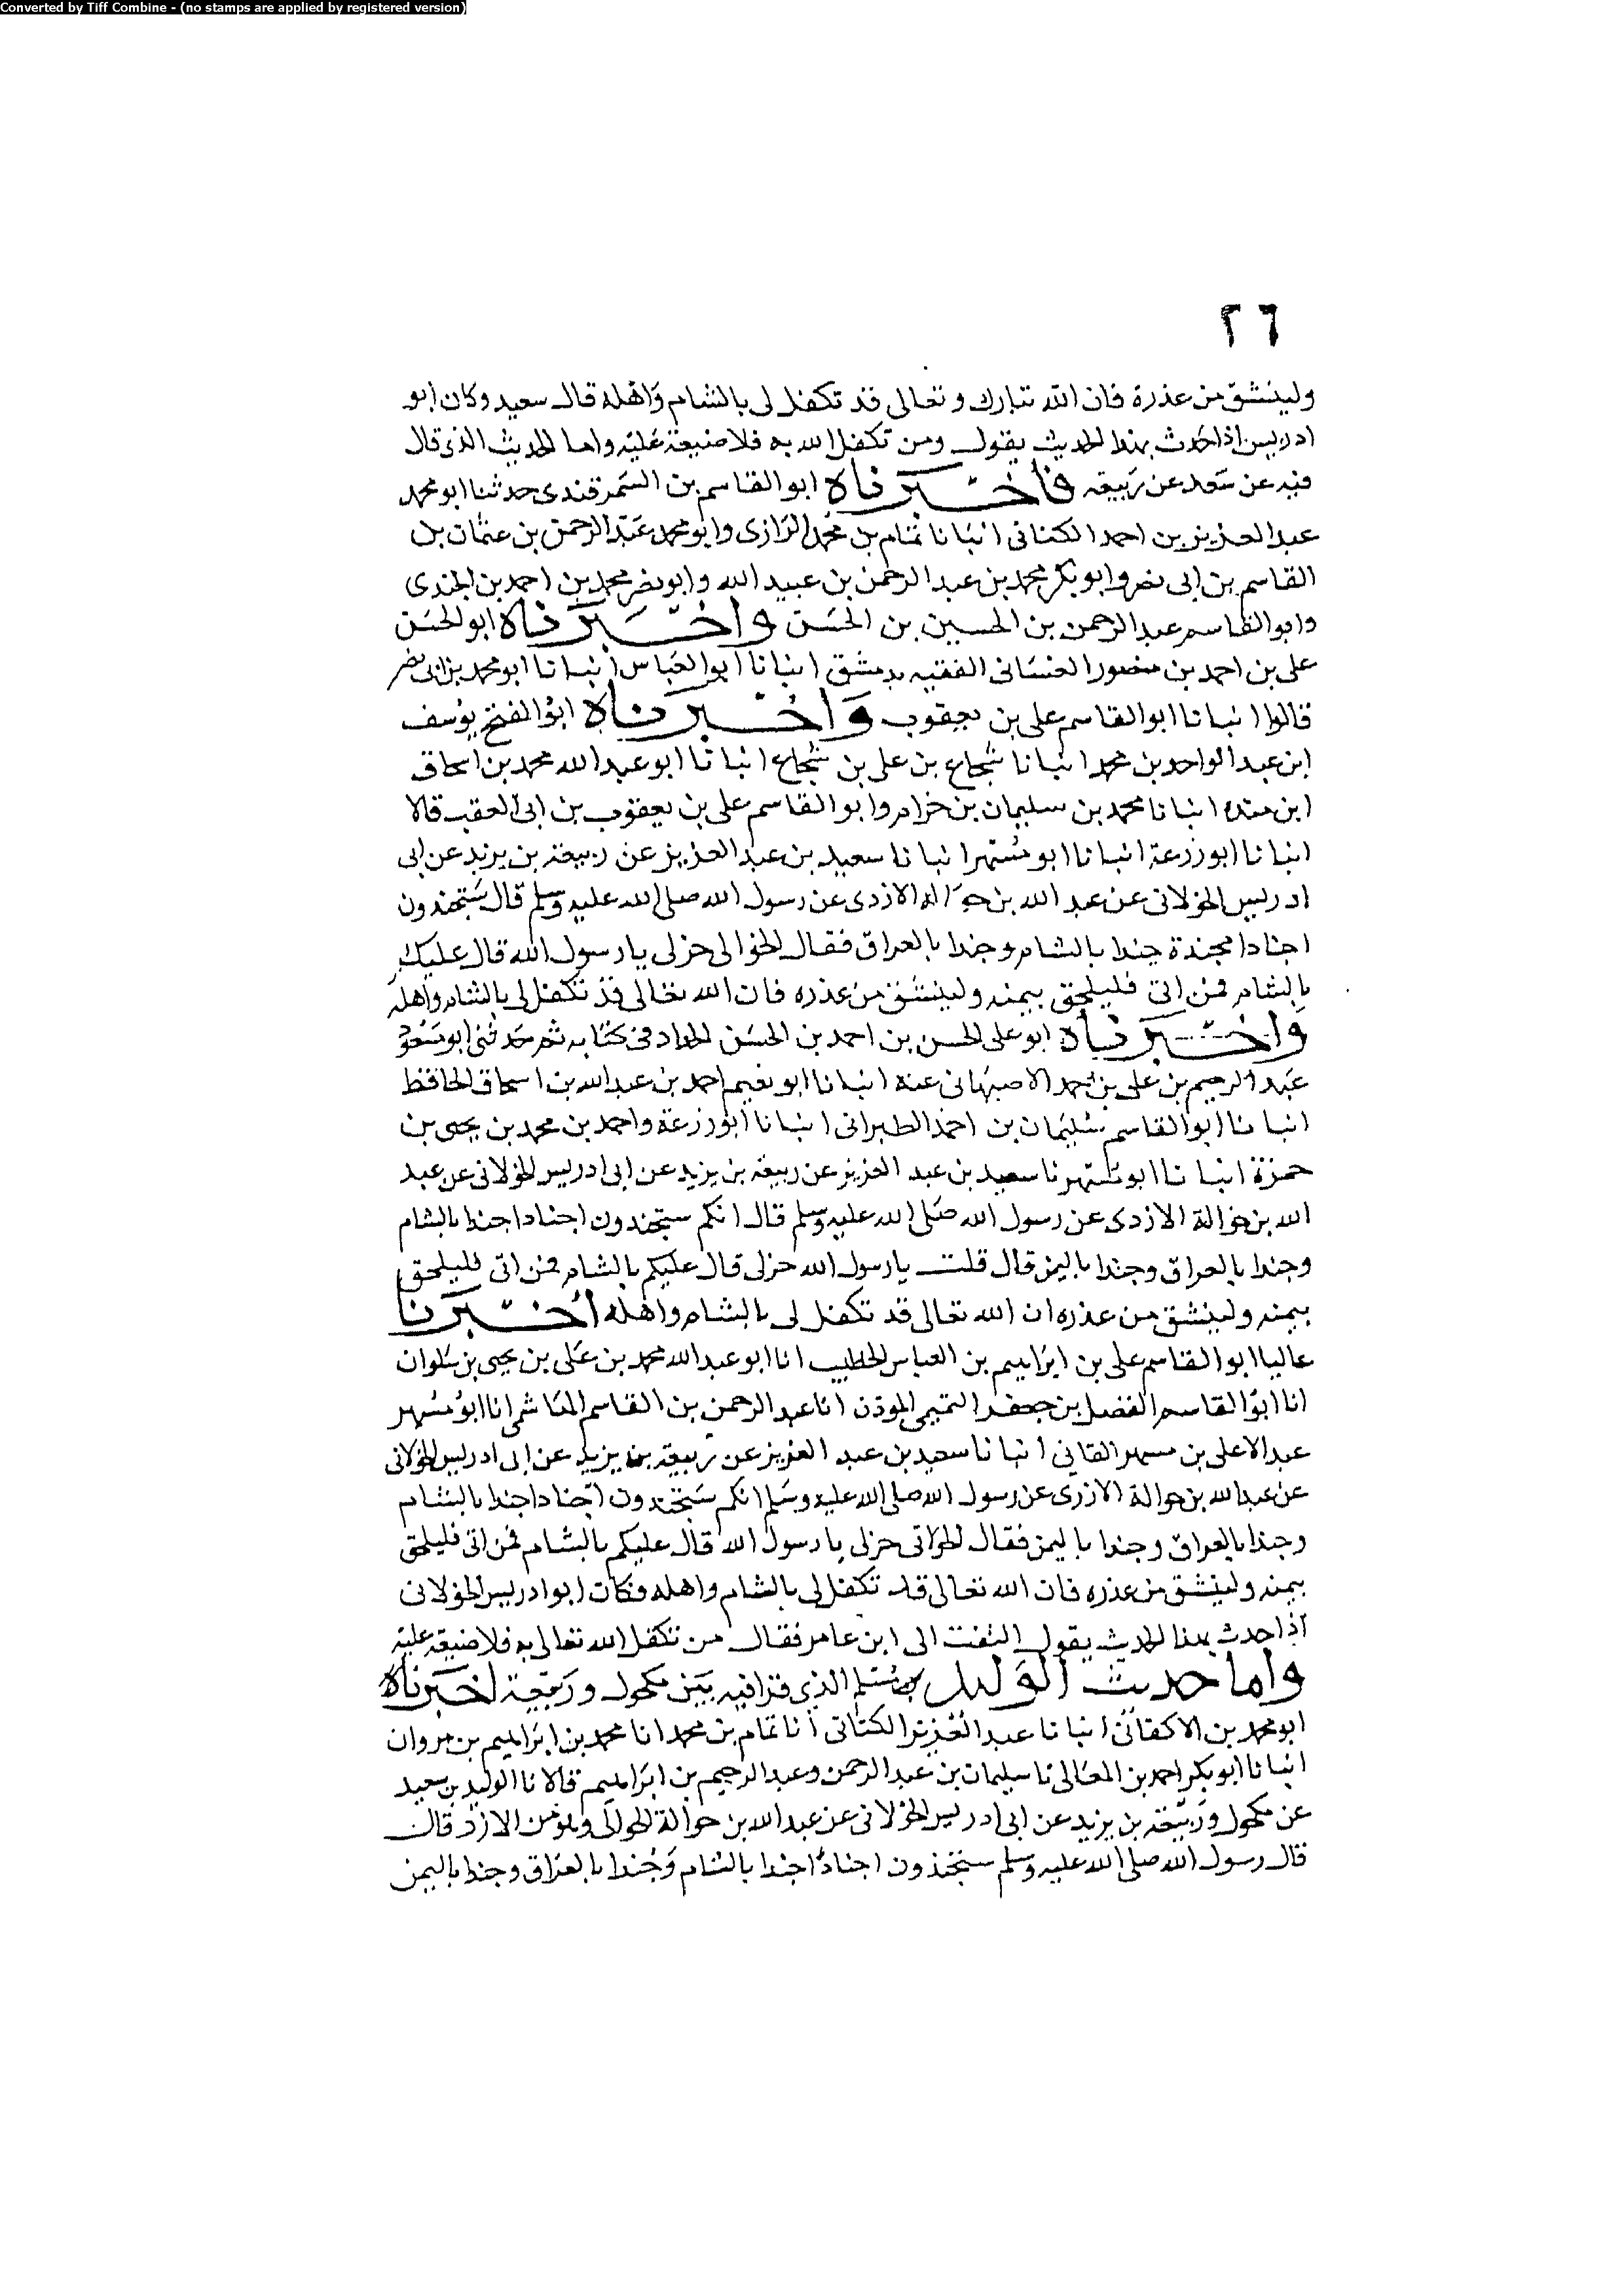 Converted by Tiff Combine - (no stamps are applied by registered version)
٢٦
ولينشق من عذره فان الله تبارك وتعالى قد تكفل لى بالشام واهله قال سعيد وكان ابو
ادريس اذا حدث بهذا الحديث يقول ومن تكفل الله به فلا ضيعة عليه واما الحديث الذى قال
فيه عن سعد عن ربيعه فاخبرناه ابو القاسم بن السمرقندى حدثنا ابو محمد
عبد العزيز بن احمد الكنانى انبانا تمام بن محمد الرازى وابو محمد عبد الرحمن بن عثمان بن
القاسم بن ابى نصر وابو بكر محمد بن عبد الرحمن بن عبيد الله وابو نصر محمد بن احمد بن الجندى
وابو القاسم عبد الرحمن بن الحسين بن الحسن واخبرناه ابو الحسن
على بن احمد بن منصور الغسانى الفقيه بدمشق انبانا ابو العباس انبانا ابو محمد بن ابى نصر
قالوا انبانا ابو القاسم على بن يعقوب واخبرناه ابو الفتح يوسف
ابن عبد الواحد بن محمد انبانا شجاع بن على بن شجاع انبانا ابو عبد الله محمد بن اسحاق
ابن منده انبانا محمد بن سليمان بن خزام وابو القاسم على بن يعقوب بن ابى العقب قالا
انبانا ابو زرعة انبانا ابو مسهر انبانا سعيد بن عبد العزيز عن ربيعة بن يزيد عن ابى
ادريس الخولانى عن عبد الله بن حوالة الازدى عن رسول الله صلى الله عليه وسلم قال ستجندون
اجنادا مجندة جندا بالشام وجندا بالعراق فقال الحوالى خر لى يا رسول الله قال عليك
بالشام فمن ابى فليلحق بيمنه ولينشق من عذره فان الله تعالى قد تكفل لى بالشام واهله
واخبرناه ابو على الحسن بن احمد بن الحسن الحداد فى كتابه ثم حدثنى ابو مسعود
عبد الرحيم بن على بن حمد الاصبهانى عنه انبانا ابو نعيم احمد بن عبد الله بن اسحاق الحافظ
انبانا ابو القاسم سليمان بن احمد الطبرانى انبانا ابو زرعة واحمد بن محمد بن يحيى بن
حمزة انبانا ابو مسهر نا سعيد بن عبد العزيز عن ربيعة بن يزيد عن ابى ادريس الخولانى عن عبد
الله بن حوالة الازدى عن رسول الله صلى الله عليه وسلم قال انكم ستجندون اجنادا جندا بالشام
وجندا بالعراق وجندا باليمن قال قلت يا رسول الله خر لى قال عليكم بالشام فمن ابى فليلحق
بيمنه ولينشق من عذره ان الله تعالى قد تكفل لى بالشام واهله اخبرنا
عاليا ابو القاسم على بن ابراهيم بن العباس الخطيب انا ابو عبد الله محمد بن على بن يحيى بن سلوان
انا ابو القاسم الفضل بن جعفر التميمى الموذن انا عبد الرحمن بن القاسم الهاشمى انا ابو مسهر
عبد الاعلى بن مسهر الغانى انبانا سعيد بن عبد العزيز عن ربيعة بن يزيد عن ابى ادريس الخولانى
عن عبد الله بن حوالة الازدى عن رسول الله صلى الله عليه وسلم انكم ستجندون اجنادا جندا بالشام
وجندا بالعراق وجندا باليمن فقال الحوالى خر لى يا رسول الله قال عليكم بالشام فمن ابى فليلحق
بيمنه ولينشق من عذره فان الله تعالى قد تكفل لى بالشام واهله وكان ابو ادريس الخولانى
اذا حدث بهذا الحديث يقول التفت الى ابن عامر فقال من تكفل الله تعالى به فلا ضيعة عليه
واما حديث الوليد بن مسلم الذى قرن فيه بين مكحول وربيعة اخبرناه
ابو محمد بن الاكفانى انبانا عبد العزيز الكتانى انا تمام بن محمد انا محمد بن ابراهيم بن مروان
انبانا ابو بكر احمد بن المعلى نا سليمان بن عبد الرحمن وعبد الرحيم بن ابراهيم قالا نا الوليد بن سعيد
عن مكحول وربيعة بن يزيد عن ابى ادريس الخولانى عن عبد الله بن حوالة الحوالى وهو من الازد قال
قال رسول الله صلى الله عليه وسلم ستجندون اجنادا جندا بالشام وجندا بالعراق وجندا باليمن